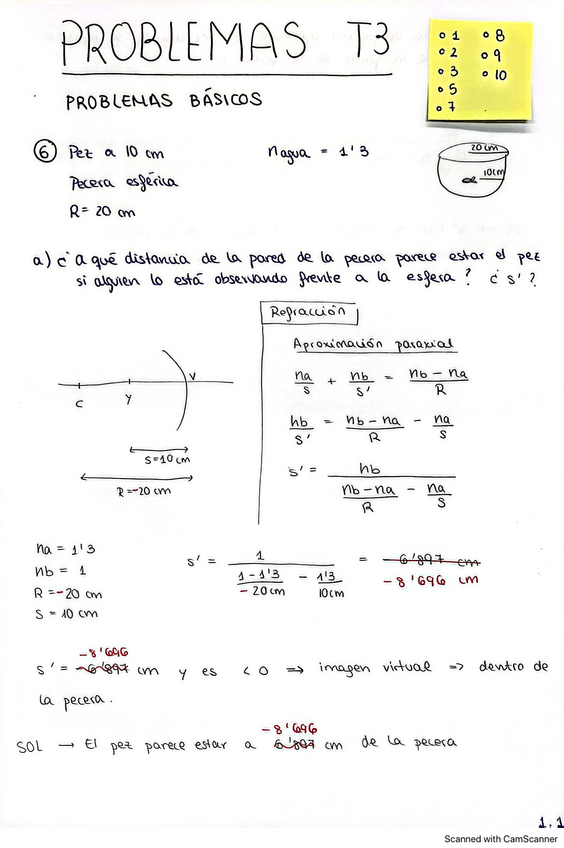 PROBLEMAS T3
1 8
2 9
3 10
5
7
PROBLEMAS BÁSICOS
6 Pez a 10 cm
nagua = 1'3
Pecera esférica
R = 20 cm
20 cm
10cm
a) ¿A qué distancia de la pared de la pecera parece estar el pez
si alguien lo está observando frente a la esfera? ¿s'?
Refracción
Aproximación paraxial
na/s + nb/s' = (nb - na)/R
nb/s' = (nb - na)/R - na/s
s' = nb/((nb - na)/R - na/s)
C Y V
S=10 cm
R=-20 cm
na = 1'3
nb = 1
R = -20 cm
S = 10 cm
s' = 1/((1 - 1'3)/(-20cm) - 1'3/10cm) = -6'897 cm
-8'696 cm
-8'696
s' = -6'897 cm y es < 0 ⇒ imagen virtual ⇒ dentro de
la pecera.
-8'696
SOL → El pez parece estar a 6'897 cm de la pecera
1.1
Scanned with CamScanner